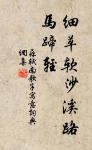 細草軟沙溪路
馬蹄輕
蘇軾南歌子寓意詞典
網集